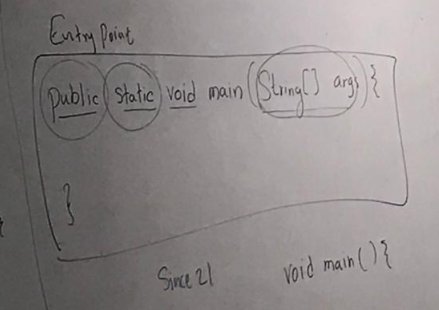 Entry Point
public static void main(String[] args){
}
Since 21 void main(){